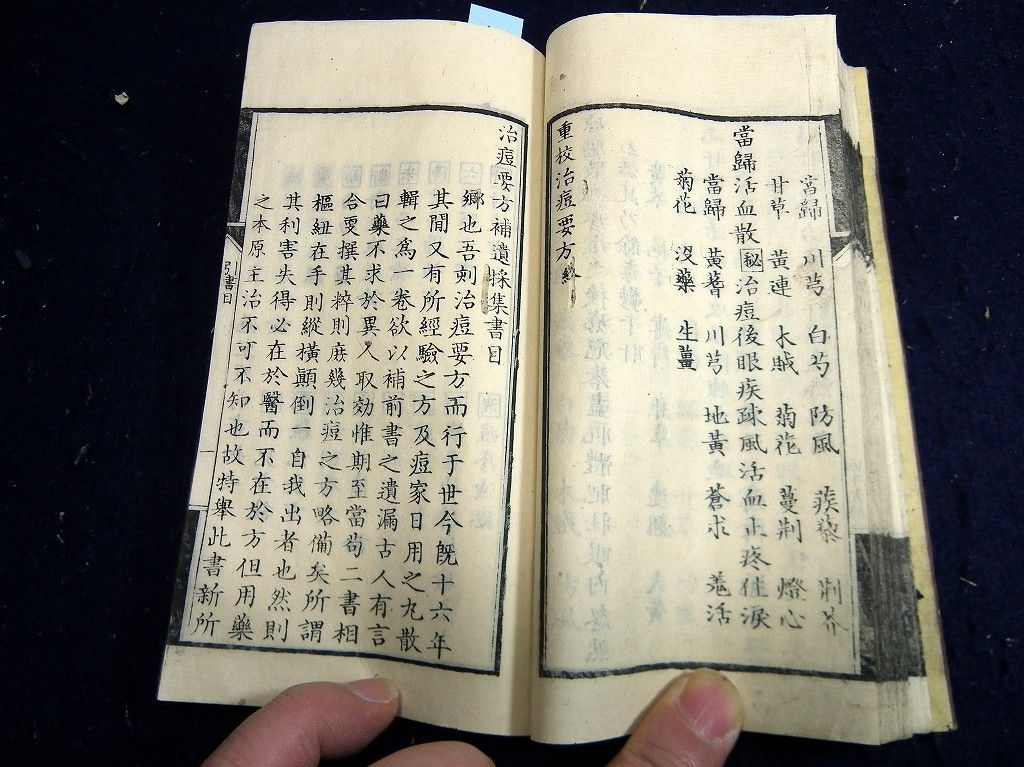 當歸 川芎 白芍 防風 蒺藜 荆芥
甘草 黃連 木賊 菊花 蔓荆 燈心
當歸活血散 秘 治痘後眼疾疎風活血止疼住淚
當歸 黃蓍 川芎 地黃 蒼朮 羗活
菊花 沒藥 生薑
重校治痘要方終
治痘要方補遺採集書目
鄉也吾刻治痘要方而行于世今旣十六年
其閒又有所經驗之方及痘家日用之丸散
輯之爲一卷欲以補前書之遺漏古人有言
曰藥不求於異人取効惟期至當苟二書相
合要撰其粹則庶幾治痘之方略備矣所謂
樞紐在手則縱橫顚倒一自我出者也然則
其利害失得必在於醫而不在於方但用藥
之本原主治不可不知也故特舉此書新所
引書目